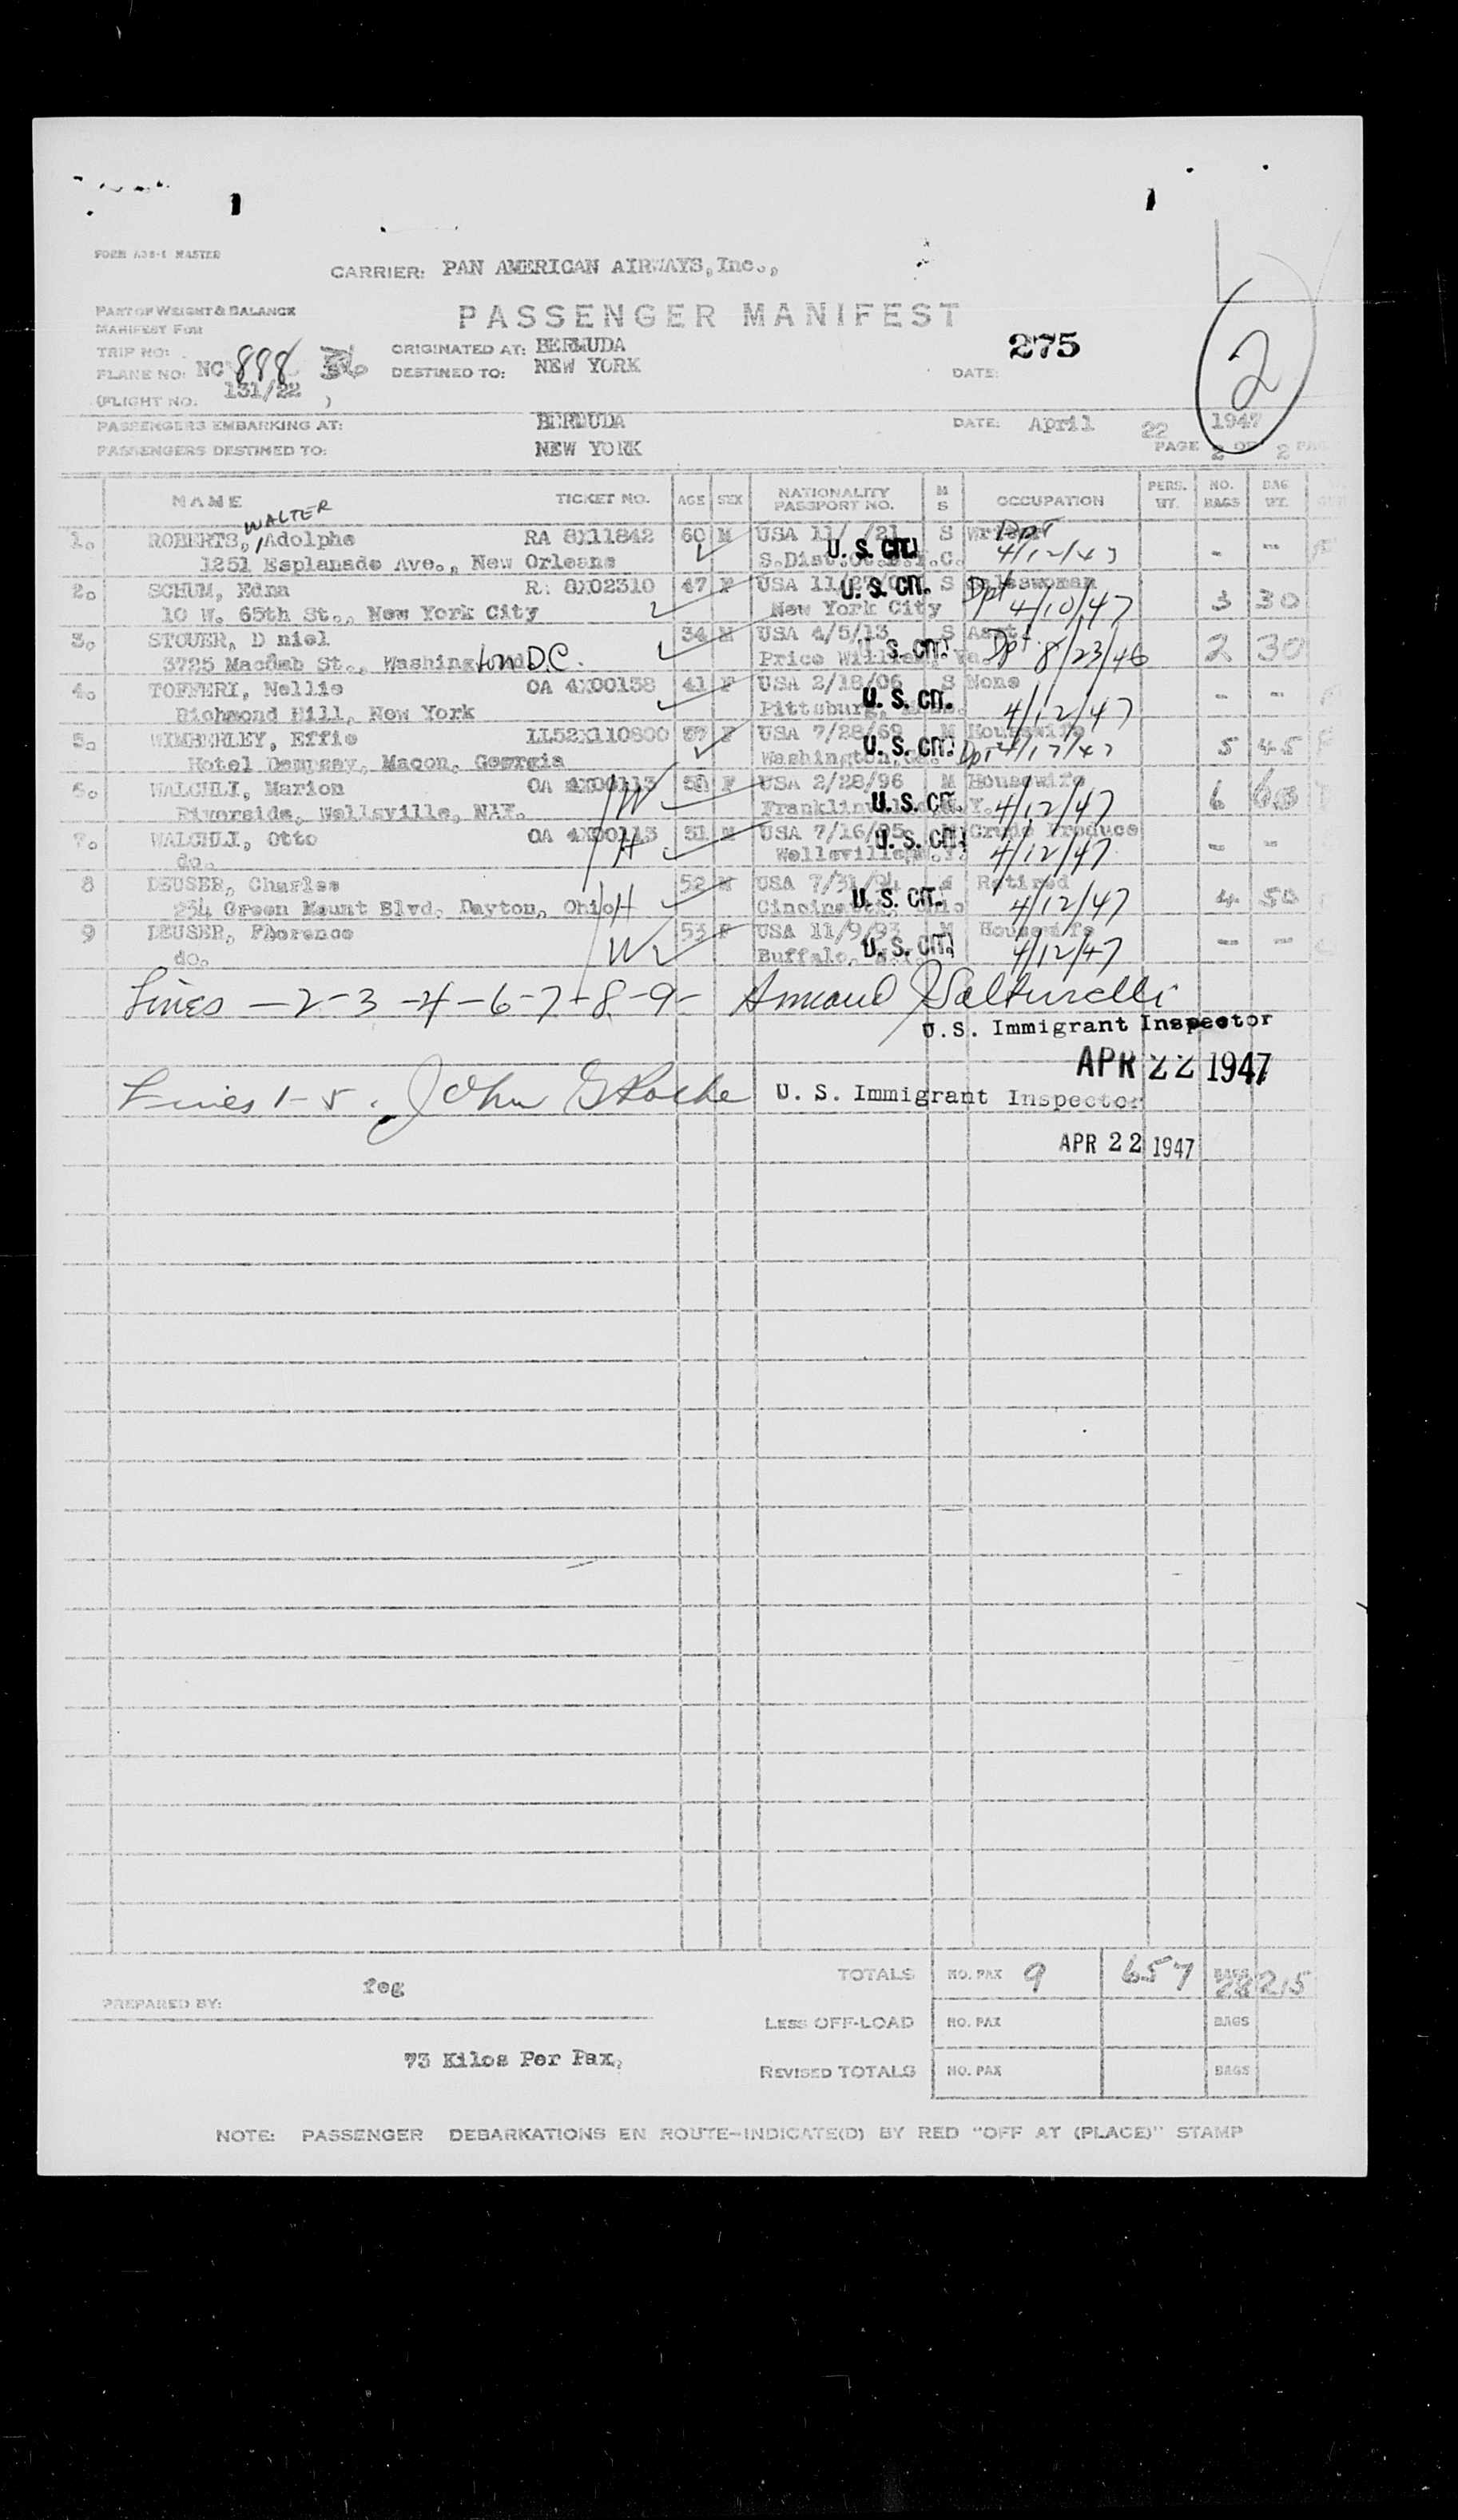 FORM A38-1 MASTER
CARRIER: PAN AMERICAN AIRWAYS, Inc.,
PART OF WEIGHT & BALANCE
MANIFEST FORM
PASSENGER MANIFEST
275
2
TRIP NO:
ORIGINATED AT: BERMUDA
PLANE NO: NC 888 36
DESTINED TO: NEW YORK
DATE:
(FLIGHT NO. 131/22 )
PASSENGERS EMBARKING AT: BERMUDA DATE: April 22 1947
PASSENGERS DESTINED TO: NEW YORK PAGE 2 OF 2
NAME TICKET NO. AGE SEX NATIONALITY PASSPORT NO. M S OCCUPATION PERS. WT. NO. BAGS BAG WT.
WALTER
1. ROBERTS, Adolphe RA 8X11842 60 M USA 11/ /21 S Writer Dpt - --
1251 Esplanade Ave., New Orleans S.Dist. U. S. CIT. 4/12/47
2. SCHUM, Edna RA 8X02310 47 F USA U. S. CIT. S Saleswoman Dpt 3 30
10 W. 65th St., New York City New York City 4/10/47
3. STOUER, D niel 34 M USA 4/5/13 S Asst. 2 30
3725 Macomb St., Washington D.C. Price William, Va. S. CIT. Dpt 8/23/46
4. TOFFERI, Nellie OA 4X00138 41 F USA 2/18/06 S None - -
Richmond Hill, New York Pittsburg, U. S. CIT. 4/12/47
5. WIMBERLEY, Effie F USA 7/28/69 M Housewife 5 45
Hotel Dempsey, Macon, Georgia Washington, U. S. CIT. Dpt 4/17/47
6. WALCHLI, Marion OA 4X00113 W F USA 2/28/96 M Housewife 6
Riverside, Wellsville, NAY. U. S. CIT. 4/12/47
7. WALCHLI, Otto OA 4X00113 H 51 M USA 7/16/95 M Crude Produce - -
do. Wellsville, U. S. CIT. 4/12/47
8 DEUSER, Charles 52 M USA 7/31/94 M Retired 4 50
234 Green Mount Blvd, Dayton, Ohio H U. S. CIT. 4/12/47
9 DEUSER, Florence W 53 F USA 11/9/93 M Housewife - -
do. Buffalo, U. S. CIT. 4/12/47
Lines - 2 - 3 - 4 - 6 - 7 - 8 - 9 -
U.S. Immigrant Inspector
APR 22 1947
Lines 1-5. John U. S. Immigrant Inspector
APR 22 1947
TOTALS NO. PAX 9 657 BAGS 215
PREPARED BY: feg
LESS OFF-LOAD NO. PAX BAGS
73 Kilos Per Pax.
REVISED TOTALS NO. PAX BAGS
NOTE: PASSENGER DEBARKATIONS EN ROUTE-INDICATE(D) BY RED "OFF AT (PLACE)" STAMP